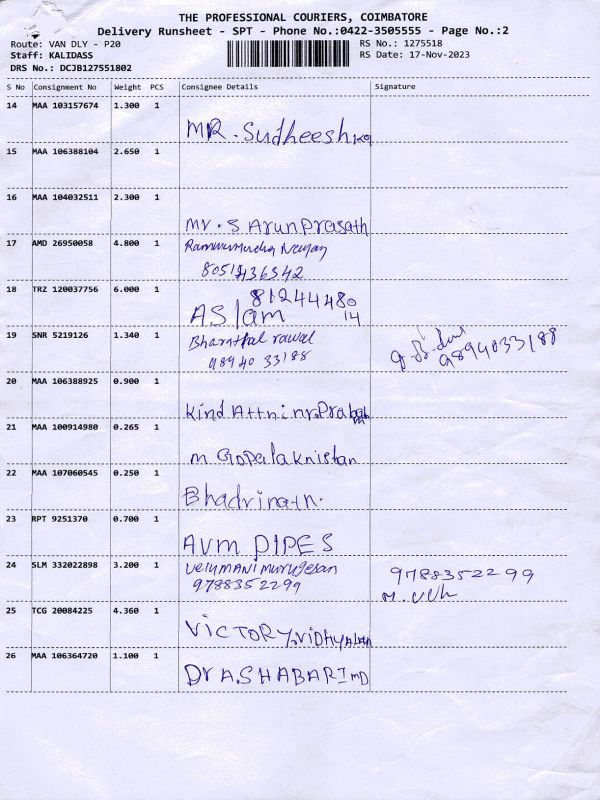 THE PROFESSIONAL COURIERS, COIMBATORE
Delivery Runsheet - SPT - Phone No.:0422-3505555 - Page No.:2
Route: VAN DLY - P20 RS No.: 1275518
Staff: KALIDASS RS Date: 17-Nov-2023
DRS No.: DCJB127551802
S No Consignment No Weight PCS Consignee Details Signature
14 MAA 103157674 1.300 1
MR. Sudheesh
15 MAA 106388104 2.650 1
16 MAA 104032511 2.300 1
Mr. S ArunPrasath
17 AMD 26950058 4.800 1
8051436342
18 TRZ 120037756 6.000 1
81244480
Aslam 14
19 SNR 5219126 1.340 1
Bharathal rawal
9894033188 9894033188
20 MAA 106388925 0.900 1
Kind Attn
21 MAA 100914980 0.265 1
M Gopalaknistan
22 MAA 107060545 0.250 1
Bhadrinath.
23 RPT 9251370 0.700 1
AVM PIPES
24 SLM 332022898 3.200 1
velumani murugesan 9788352299
9788352299 M.
25 TCG 20084225 4.360 1
VICTORY.
26 MAA 106364720 1.100 1
Dr A.SHABARI MD